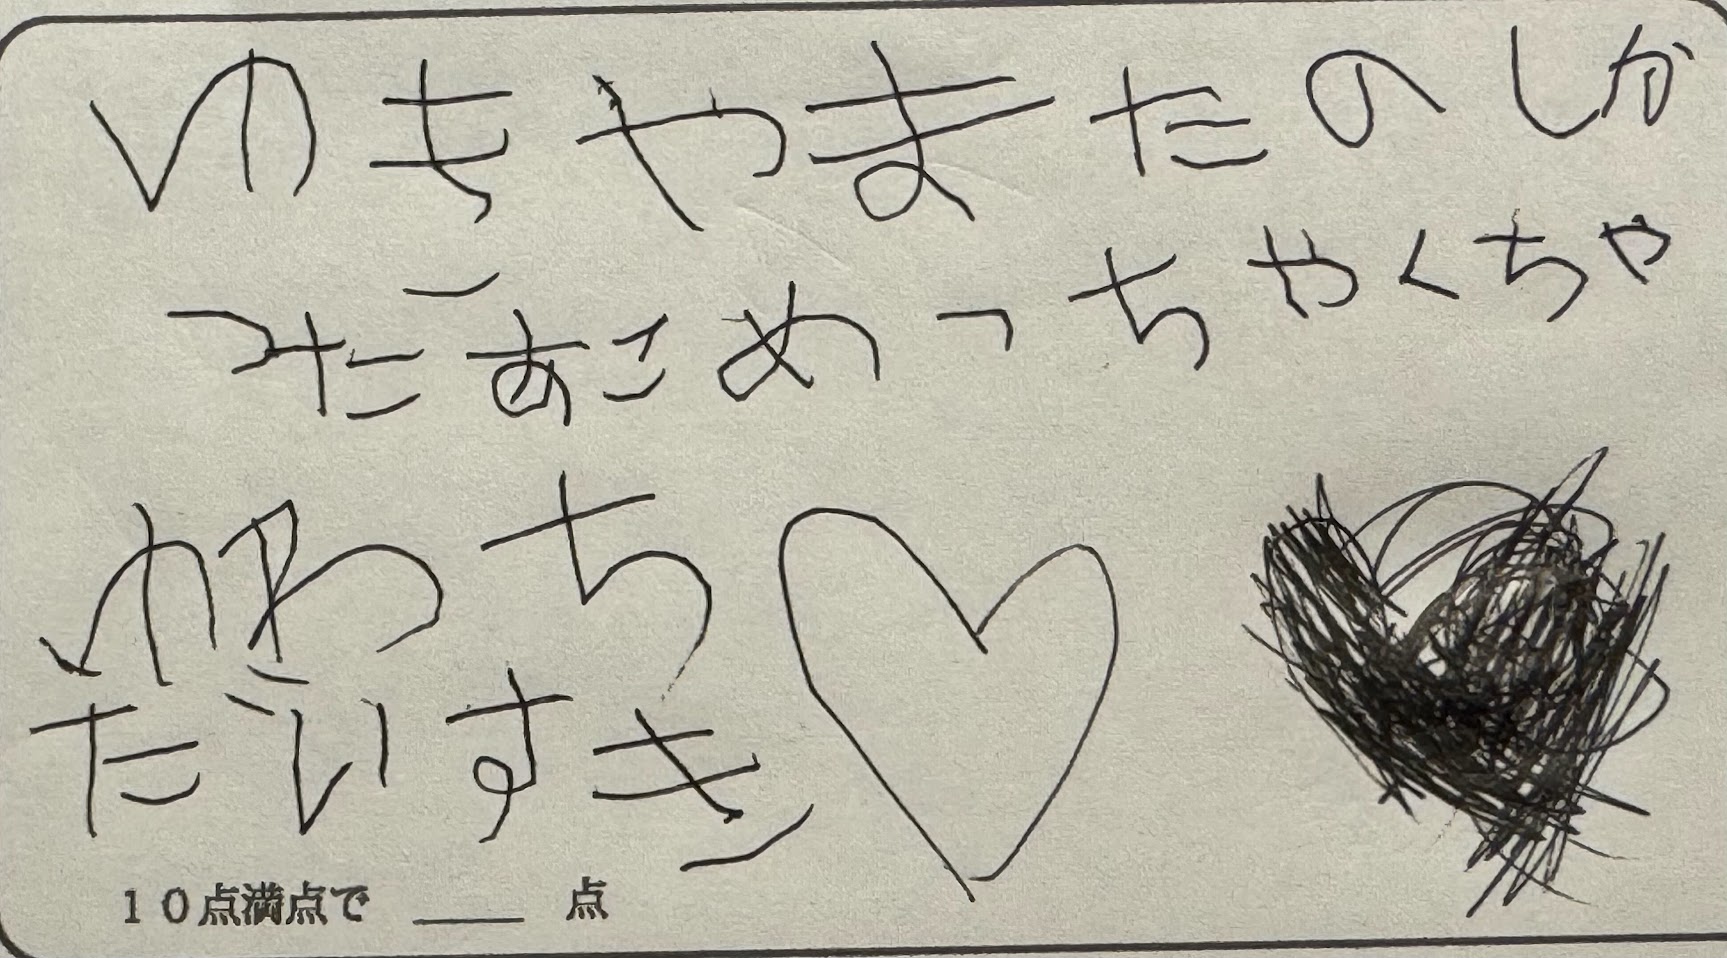 ゆきやまたのしか
つたあこめっちやくちや
ゆわち
だいすき
10点満点で ___ 点